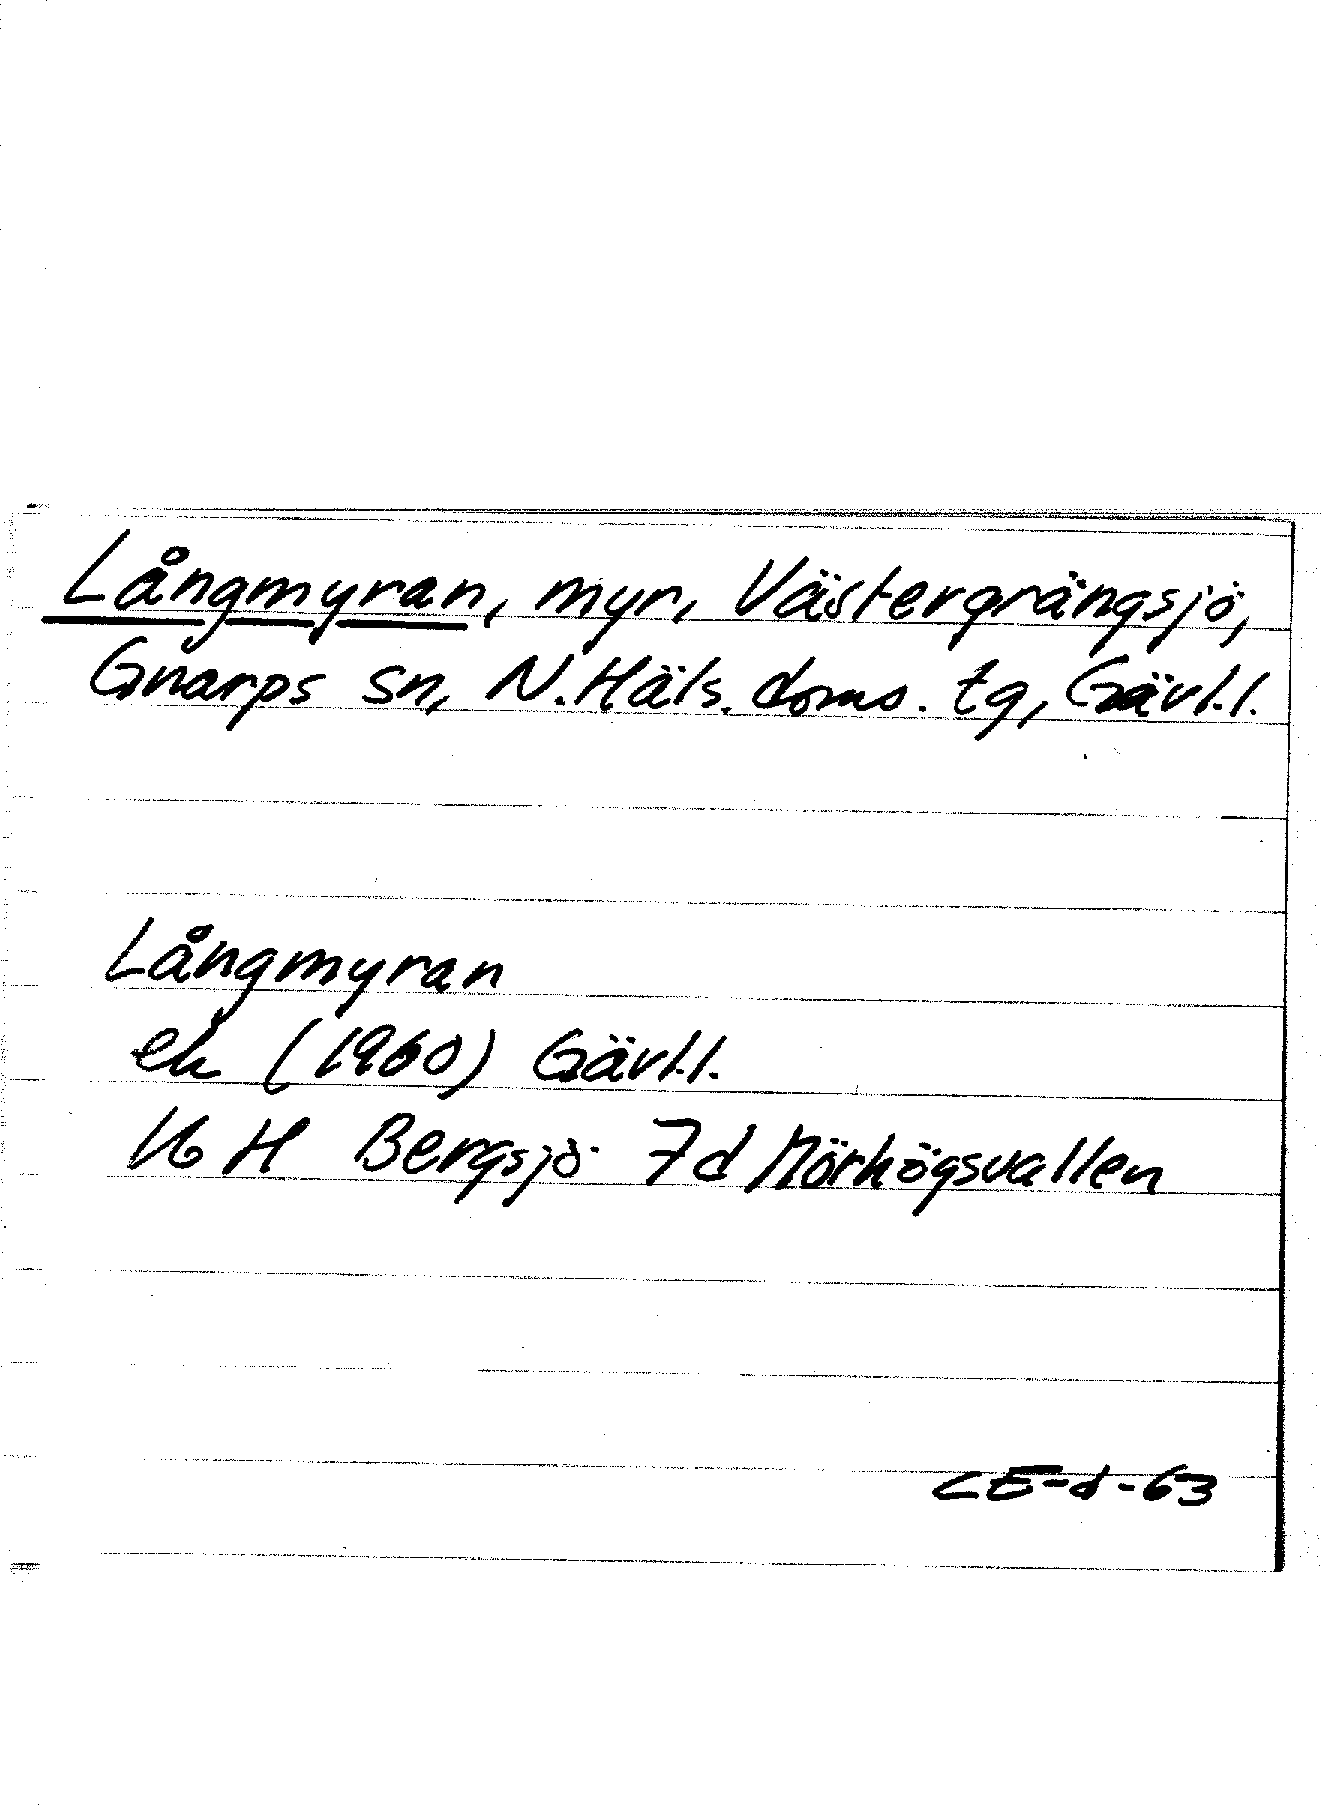 Långmyran, myr, Västergrängsjö,
Gnarps sn, N. Häls. doms. tg, Gävl.l.
Långmyran
ek (1960) Gävl.l.
16 H Bergsjö 7d Mörhögsvallen
CE-d-63